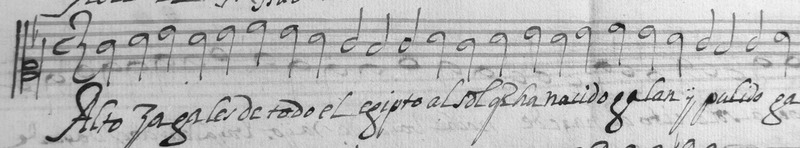 Alto zagales de todo el egipto al sol q̃ ha nacido galan y pulido ga